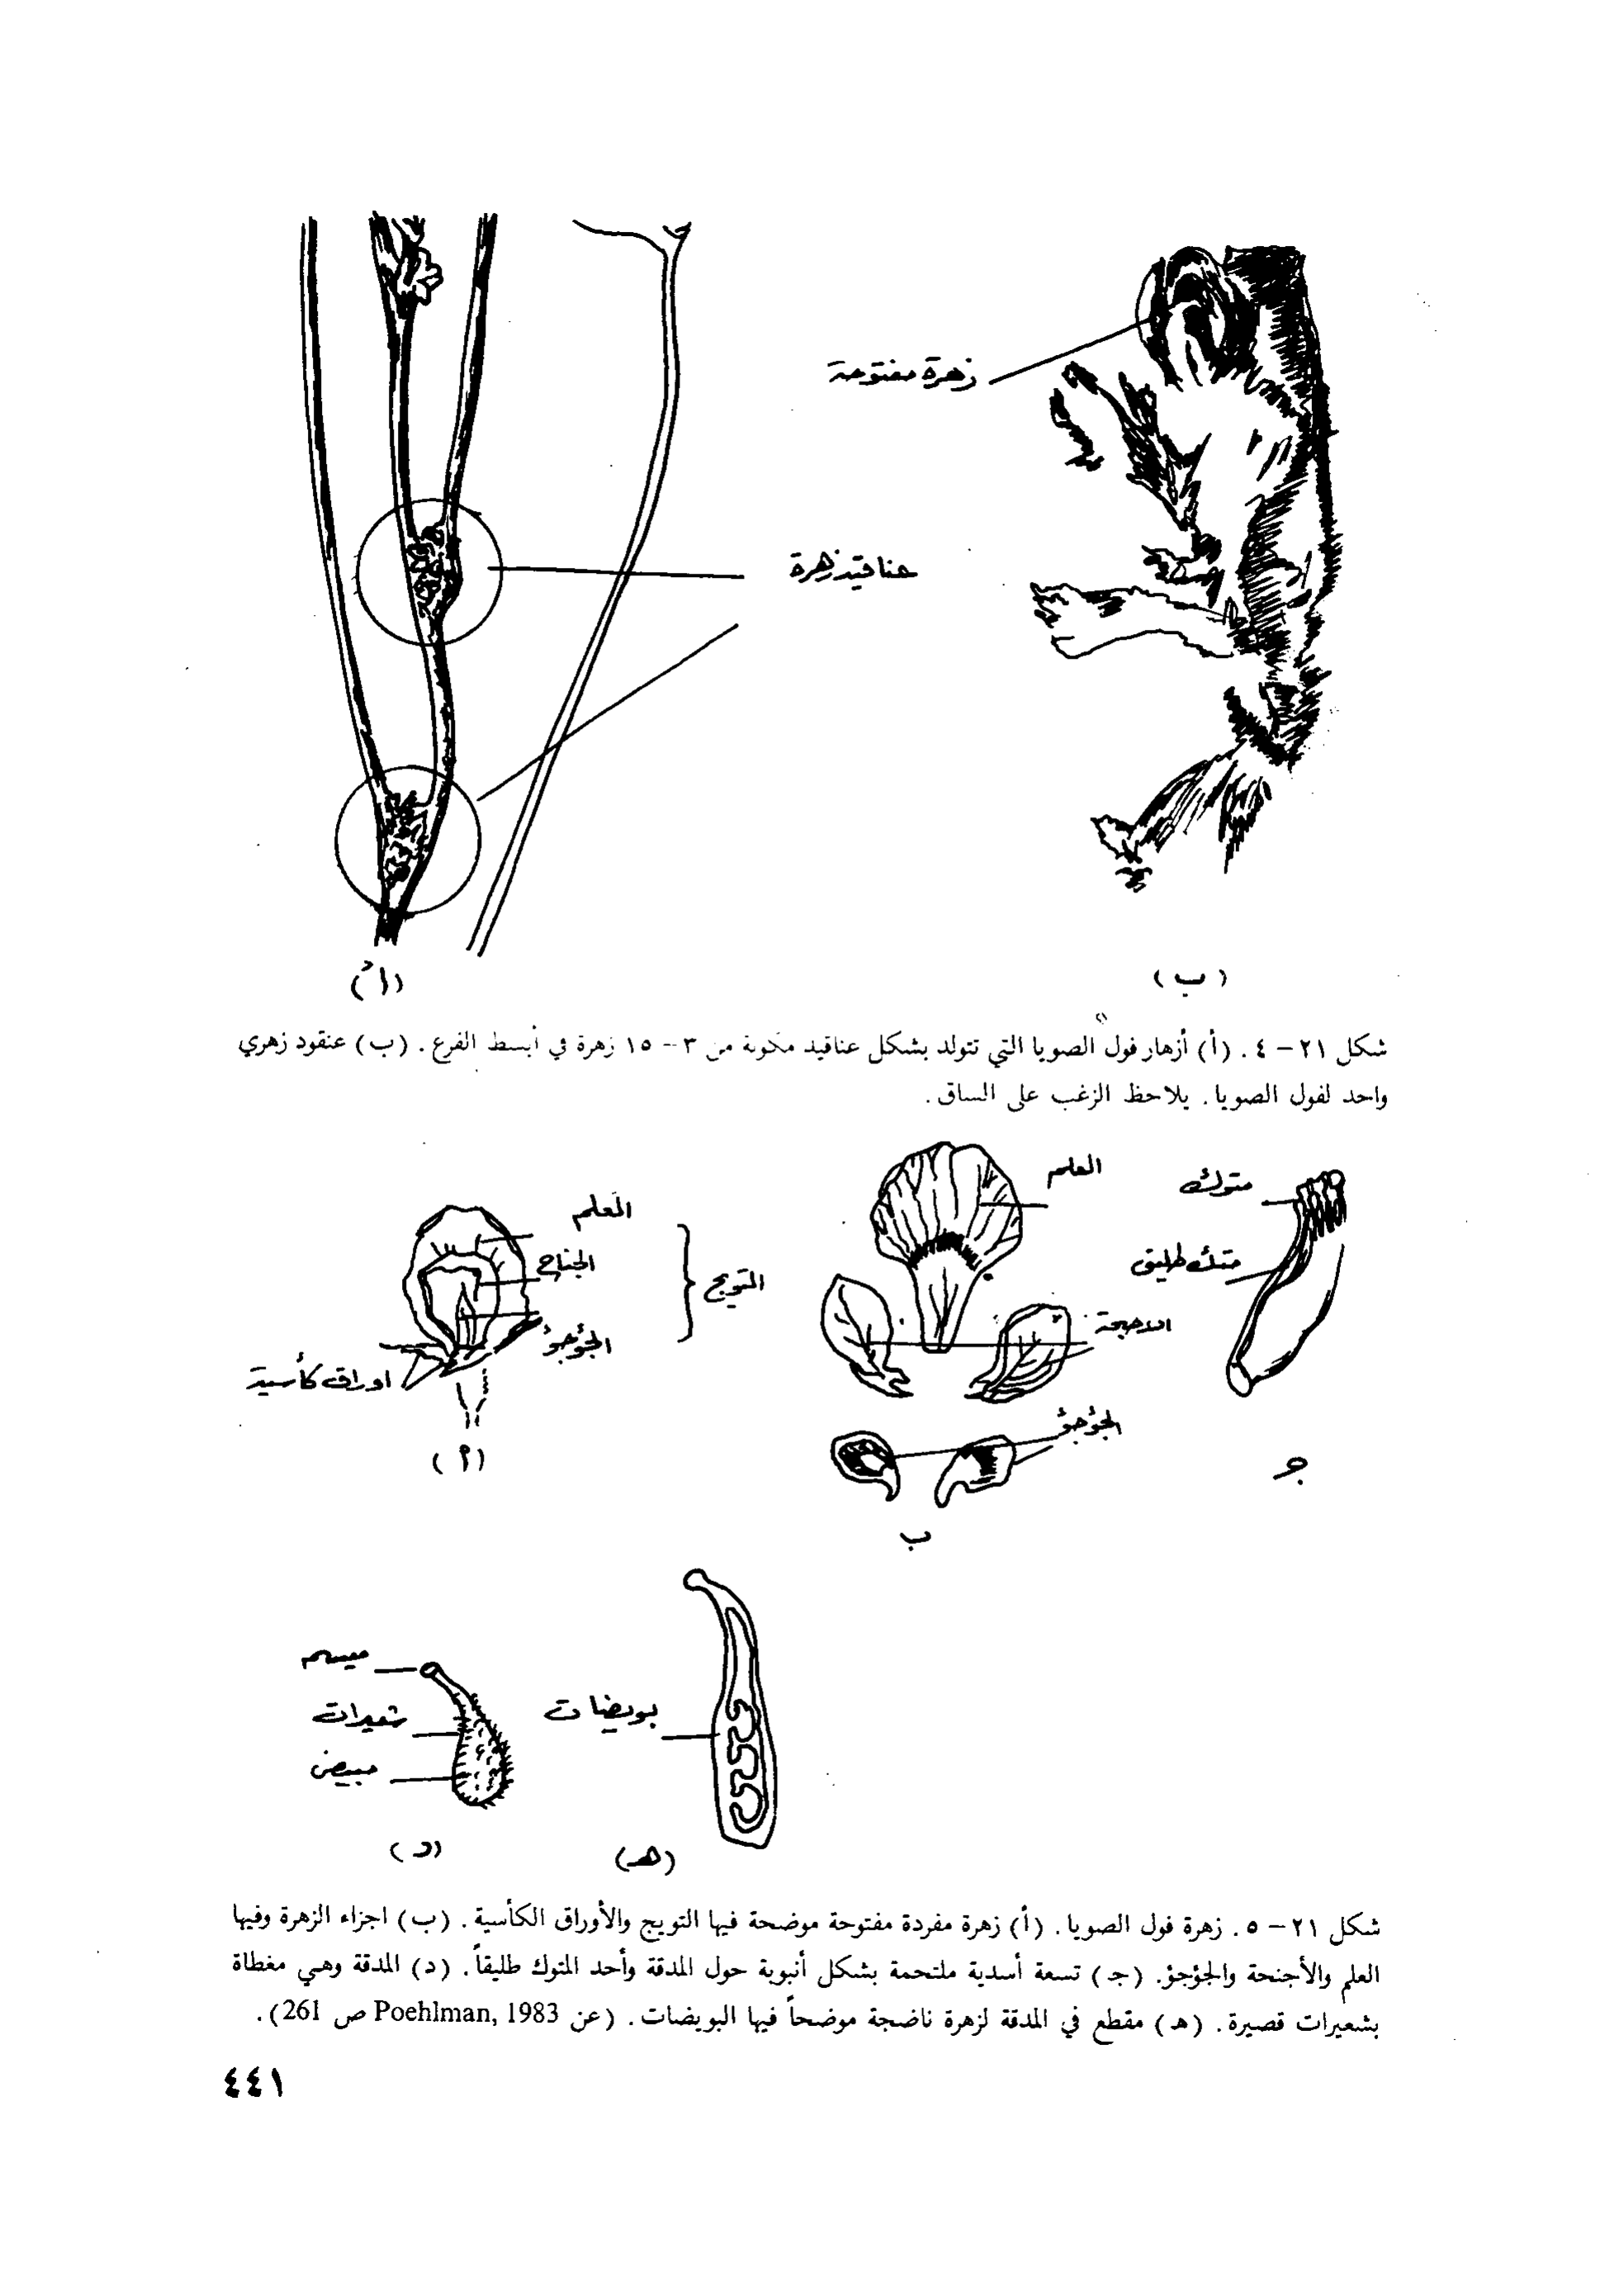 زهرة مفتوحة
عناقيد زهرة
(أ)
(ب)
شكل ٢١ – ٤ . (أ) أزهار فول الصويا التي تتولد بشكل عناقيد مكونة من ٣ – ١٥ زهرة في أبسط الفرع . (ب) عنقود زهري
واحد لفول الصويا . يلاحظ الزغب على الساق .
العلم
الجناح
الجؤجؤ
التويج
اوراق كأسية
(أ)
العلم
الاجنحة
الجؤجؤ
ب
متوك
متك طليق
جـ
ميسم
شعيرات
مبيض
(د)
بويضات
(هـ)
شكل ٢١ – ٥ . زهرة فول الصويا . (أ) زهرة مفردة مفتوحة موضحة فيها التويج والأوراق الكأسية . (ب) اجزاء الزهرة وفيها
العلم والأجنحة والجؤجؤ. (جـ) تسعة أسدية ملتحمة بشكل أنبوبة حول المدقة وأحد المتوك طليقاً . (د) المدقة وهي مغطاة
بشعيرات قصيرة . (هـ) مقطع في المدقة لزهرة ناضجة موضحاً فيها البويضات . (عن Poehlman, 1983 ص 261) .
٤٤١